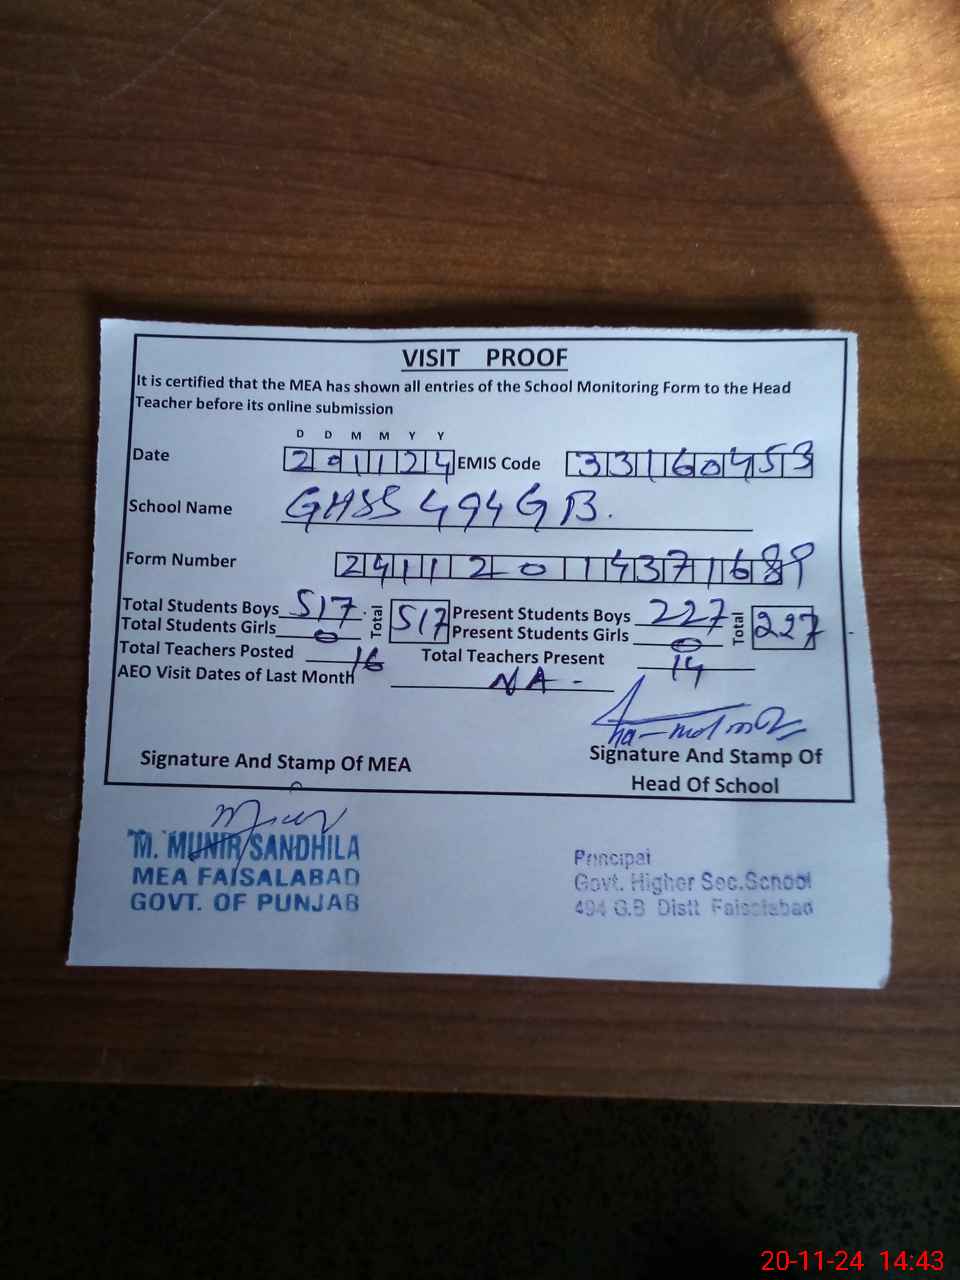 VISIT PROOF
It is certified that the MEA has shown all entries of the School Monitoring Form to the Head
Teacher before its online submission
D D M M Y Y
Date 201124 EMIS Code 33160453
School Name GHSS 494 GB.
Form Number 2411201437168
Total Students Boys 517 Total 517 Present Students Boys 227 Total 227
Total Students Girls 0 Present Students Girls 0
Total Teachers Posted 16 Total Teachers Present 14
AEO Visit Dates of Last Month NA -
Signature And Stamp Of MEA
Signature And Stamp Of
Head Of School
M. MUNIR SANDHILA
MEA FAISALABAD
GOVT. OF PUNJAB
Principal
Govt. Higher Sec. School
494 G.B Distt Faisalabad
20-11-24 14:43